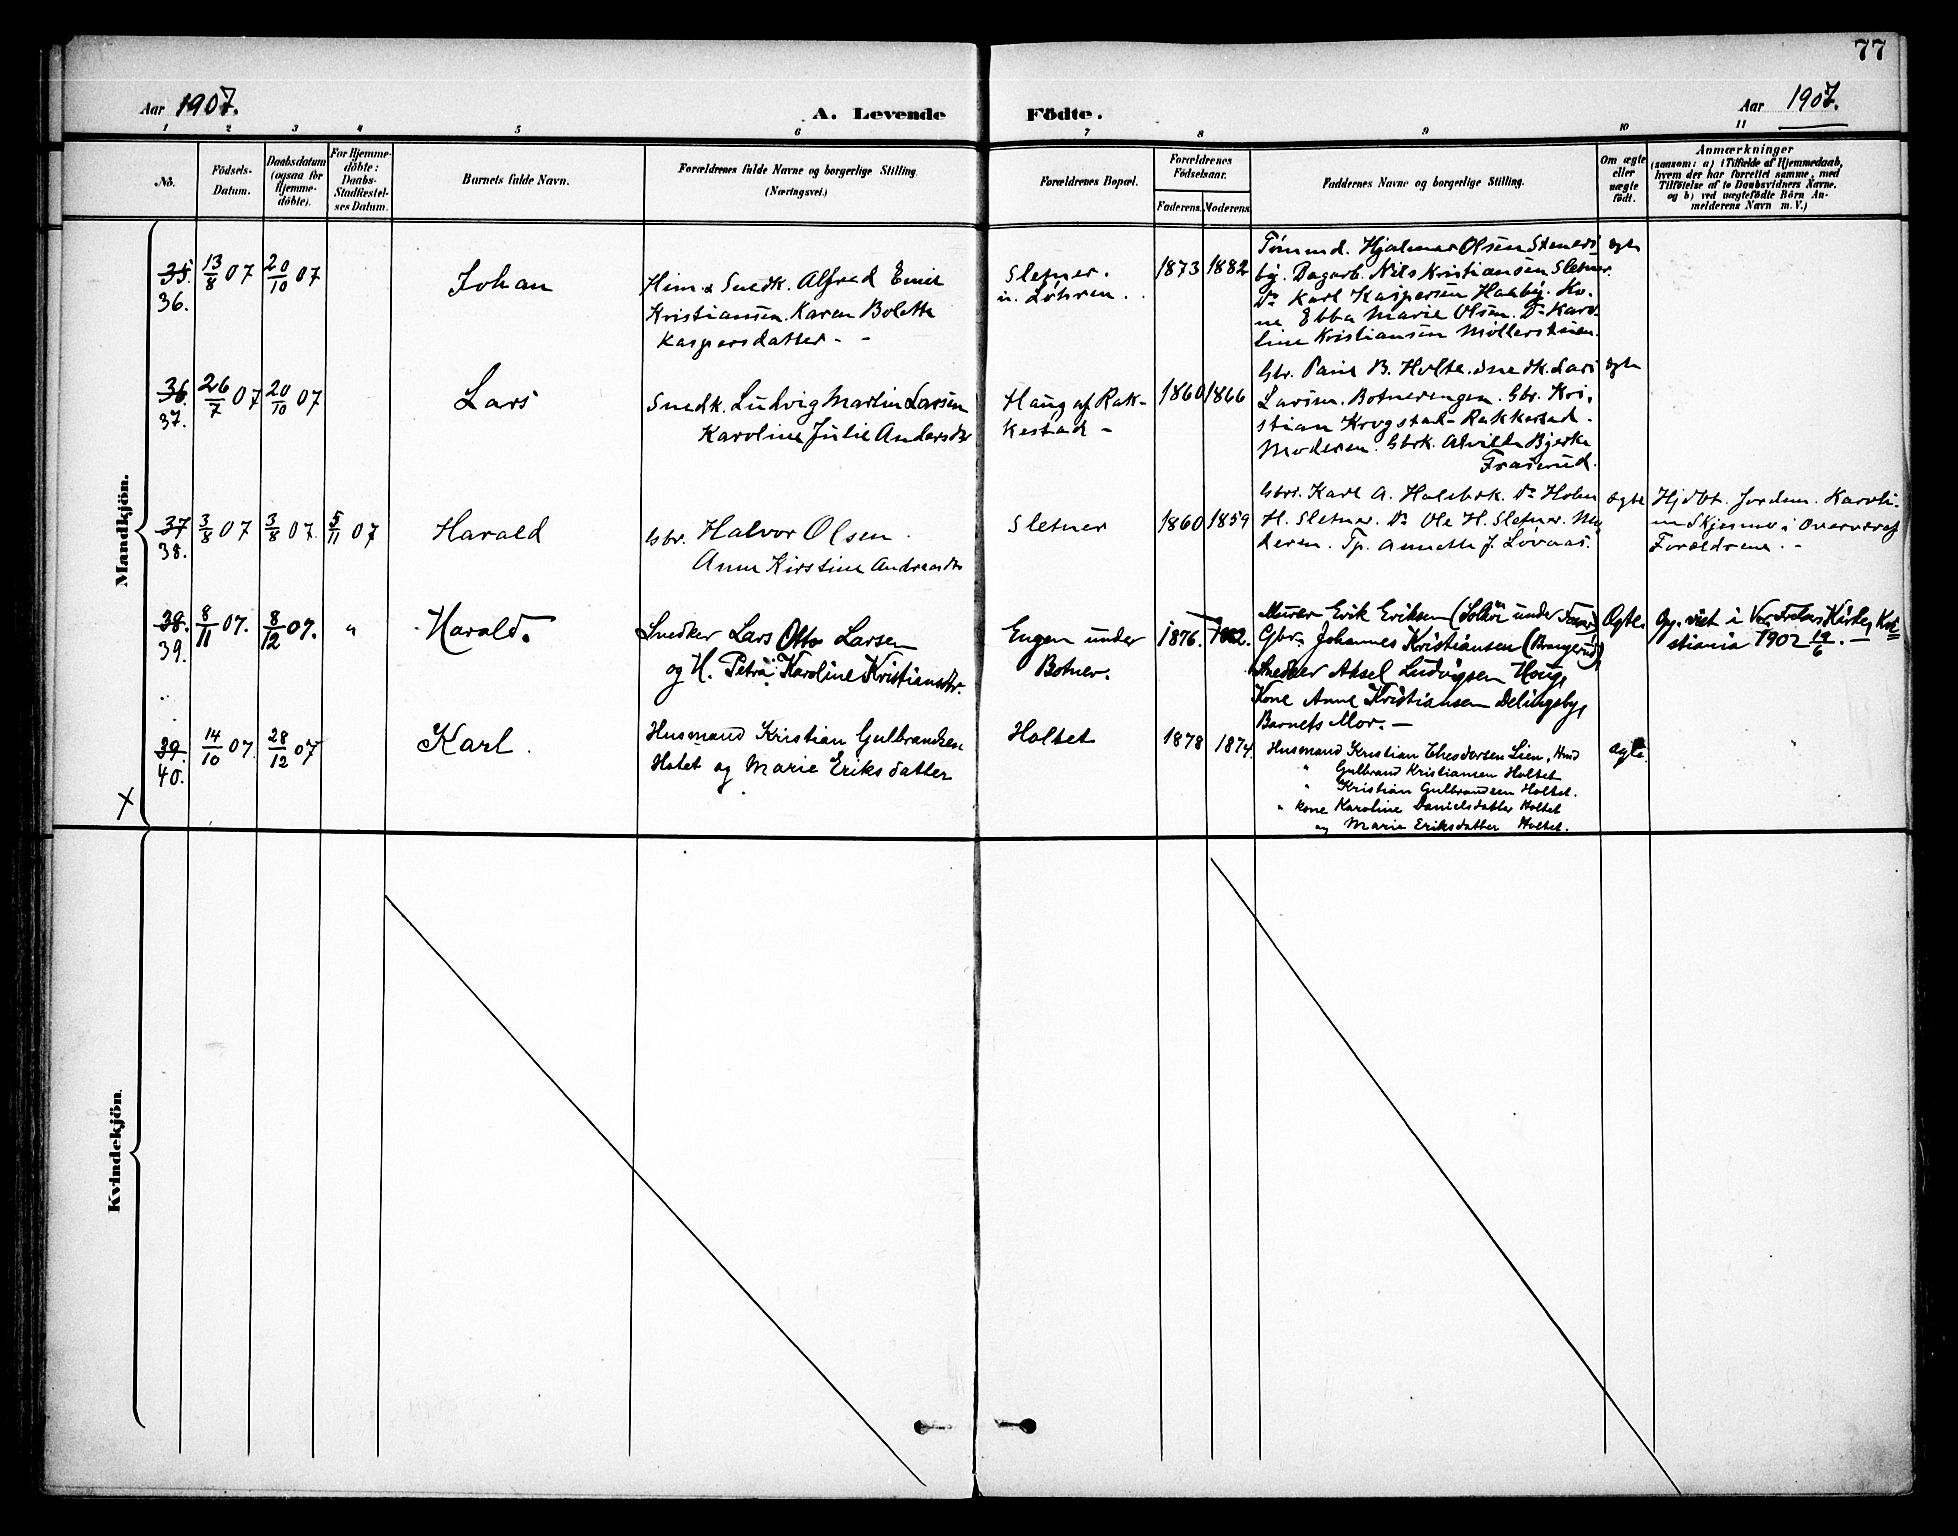 77
Aar 1907.
A. Levende
Födte.
Aar 1907.
1 2 3 4 5 6 7 8 9 10 11
No.
Födsels-
Datum.
Daabsdatum
(ogsaa for
Hjemme-
döbte).
For Hjemme-
döbte:
Daabs-
Stadfæstel-
ses Datum.
Barnets fulde Navn.
Forældrenes fulde Navne og borgerlige Stilling.
(Næringsvei.)
Forældrenes Bopæl.
Forældrenes
Födselsaar.
Faderens. Moderens.
Faddernes Navne og borgerlige Stilling.
Om ægte
eller
uægte
födt.
Anmærkninger
(saasom: a) i Tilfælde af Hjemmedaab,
hvem der har forrettet samme, med
Tilföielse af to Daabsvidners Navne,
og b) ved uægtefödte Börn An-
melderens Navn m. V.)
Mandkjön.
35.
36.
13/8 07
20/10 07
Johan
Snedk. Alfred Emil
Kristiansen. Karen Bolette
Kaspersdatter
Sletner.
1873
1882
Hjalmar Olsen
by. Dagarb. Nils Kristiansen Sletner.
Do Karl Kaspersen Haaby. Ko-
ne Ebba Marie Olsen. Do Karo-
line Kristiansen
ægte
36.
37.
26/7 07
20/10 07
Lars
Snedk. Ludvig Martin Larsen
Karoline Julie Andersdr
Haug af Rak-
kestad
1860
1866
Gbr. B. Holte. Snedk. Lars
Larsen. Botnerengen. Gbr. Kri-
stian Krogstad - Rakkestad.
Moderen. Gbrk. Bjerke
ægte
37
38.
3/8 07
3/8 07
5/11 07
Harald
Gbr. Halvor Olsen.
Anne Kirstine Andreasdr
Sletner
1860
1859
Gbr. Karl A. Do Holm
H. Sletner. Do Ole H. Sletner. Mo-
deren. Tp. Annette J. Løvaas.
ægte
Hjdbt. Jordm. Karoli-
ne i Overvær af
Forældrene. -
38.
39.
8/11 07.
8/12 07.
"
Harald.
Snedker Lars Otto Larsen
og H. Petra Karoline Kristiansdr.
Engen under
Botner.
1876.
Murer Erik Eriksen
Gbr. Johannes Kristiansen
Snedker Aksel Ludvigsen Houg,
Kone Anne Kristiansen Delingsby,
Barnets Mor. -
Ægte.
Gp. viet i Vor Frelsers Kirke, Kri-
stiania 1902 19/6. -
39.
40.
14/10 07.
28/12 07
Karl.
Husmand Kristian Gulbrandsen
Holtet og Marie Eriksdatter
Holtet
1878
1874.
Husmand Kristian Lien,
" Gulbrand Kristiansen Holtet
" Kristian Gulbrandsen Holtet.
" Kone Karoline Danielsdatter Holtet
og Marie Eriksdatter Holtet.
ægte
X
Kvindekjön.